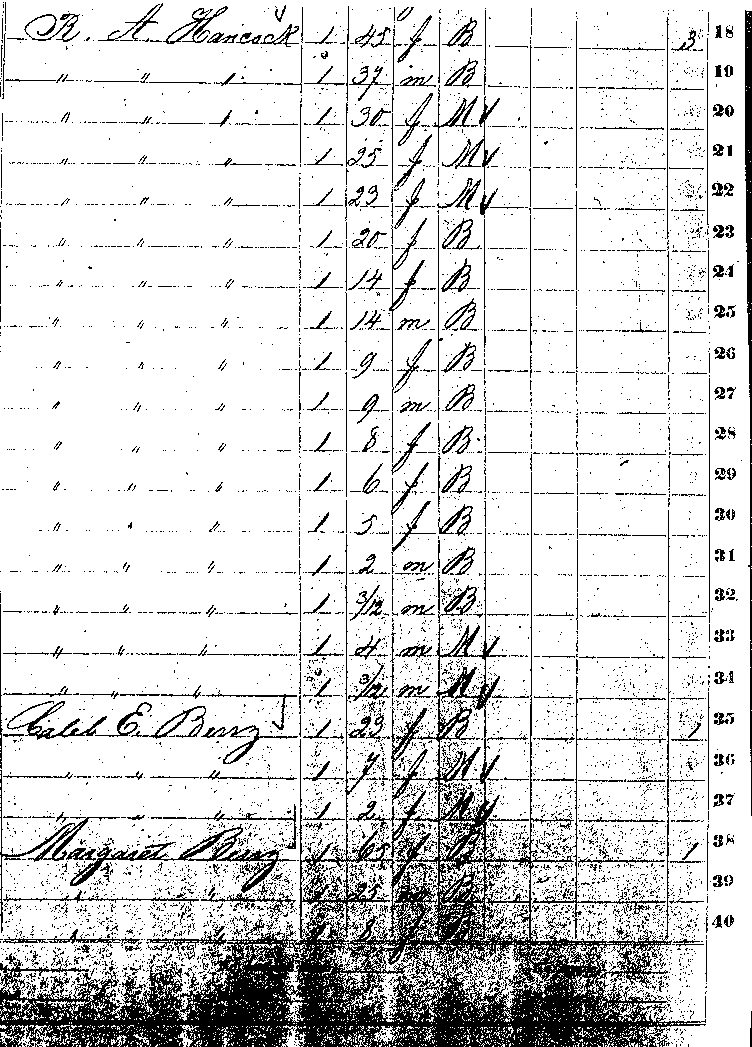 R. A. Hancock 1 45 f B 3 18
" " " 1 37 m B 19
" " " 1 30 f M 20
" " " 1 25 f M 21
" " " 1 23 f M 22
" " " 1 20 f B 23
" " " 1 14 f B 24
" " " 1 14 m B 25
" " " 1 9 f B 26
" " " 1 9 m B 27
" " " 1 8 f B 28
" " " 1 6 f B 29
" " " 1 5 f B 30
" " " 1 2 m B 31
" " " 1 3/12 m B 32
" " " 1 4 m M 33
" " " 1 3/12 m M 34
Caleb E. Berry 1 23 f B 1 35
" " " 1 7 f M 36
" " " 1 2 f M 37
Margaret Berry 1 65 f B 1 38
" " 1 25 m B 39
" " 1 8 f B 40